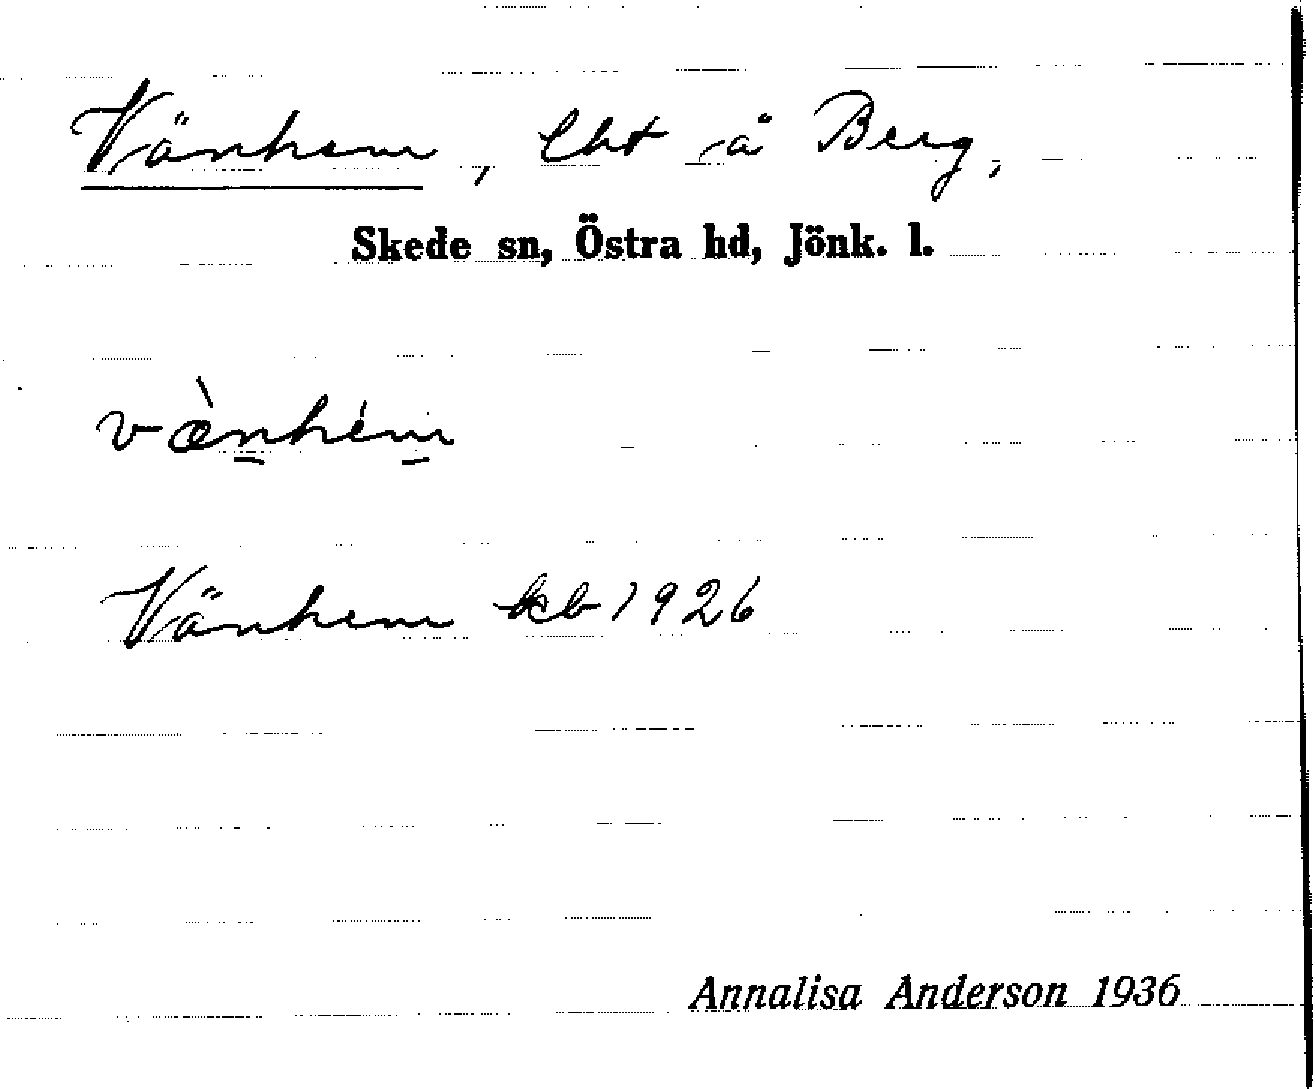 Vänhem, lht å Berg,
Skede sn, Östra hd, Jönk. l.
væ̀nhém
Vänhem kb 1926
Annalisa Anderson 1936